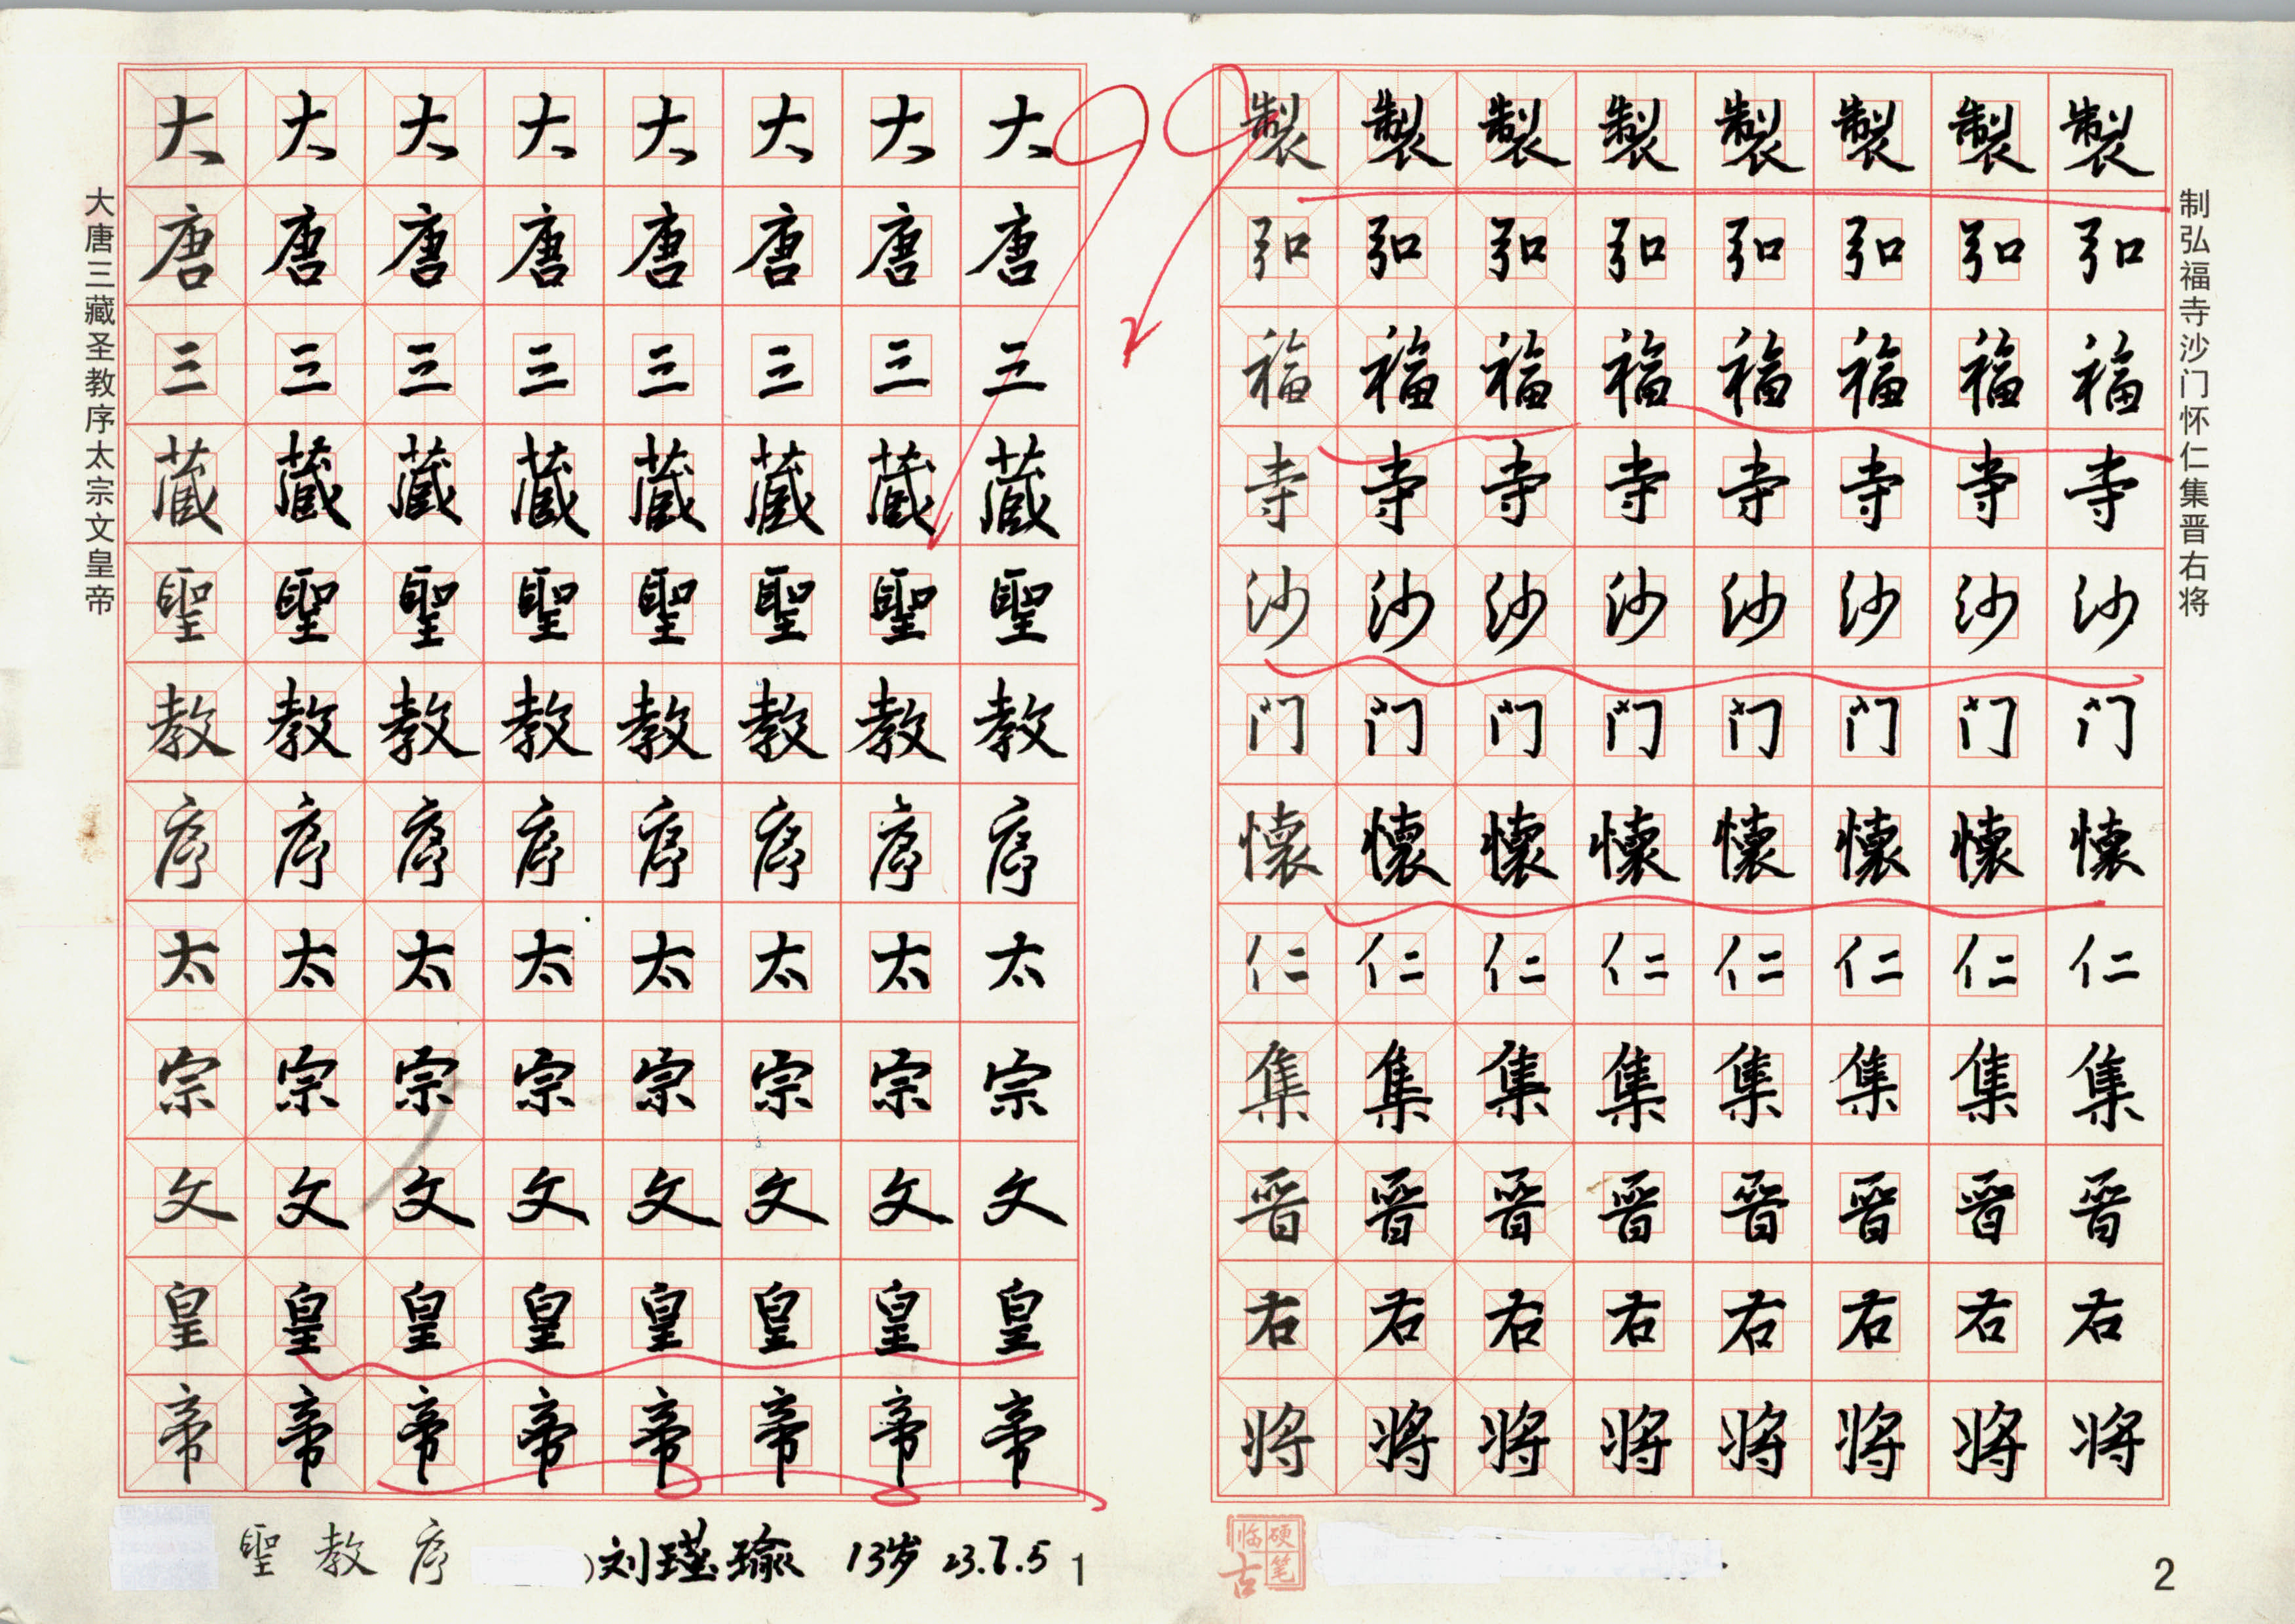 大唐三藏圣教序太宗文皇帝
大大大大大大大大
唐唐唐唐唐唐唐唐
三三三三三三三三
蔵蔵蔵蔵蔵蔵蔵蔵
聖聖聖聖聖聖聖聖
教教教教教教教教
序序序序序序序序
太太太太太太太太
宗宗宗宗宗宗宗宗
文文文文文文文文
皇皇皇皇皇皇皇皇
帝帝帝帝帝帝帝帝
聖教序 )刘瑾瑜 13岁 23.7.5 1
製製製製製製製製
弘弘弘弘弘弘弘弘
福福福福福福福福
寺寺寺寺寺寺寺寺
沙沙沙沙沙沙沙沙
门门门门门门门门
懷懷懷懷懷懷懷懷
仁仁仁仁仁仁仁仁
集集集集集集集集
晋晋晋晋晋晋晋晋
右右右右右右右右
将将将将将将将将
制弘福寺沙门怀仁集晋右将
硬笔临古
2